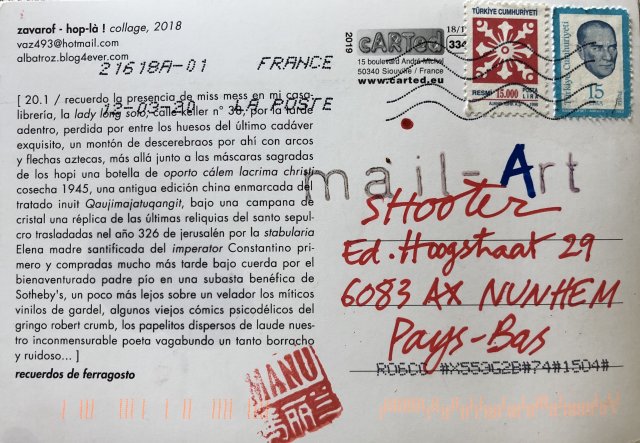 zavarof - hop-là ! collage, 2018
vaz493@hotmail.com
albatroz.blog4ever.com
21618A-01 FRANCE
LA POSTE
2019
cARTed
18/1
334
15 boulevard André Michel
50340 Siouville / France
www.carted.eu
TÜRKİYE CUMHURİYETİ
RESMİ 15.000 POSTA LİRA
Türkiye Cumhuriyeti
15
[ 20.1 / recuerdo la presencia de miss mess en mi casa-
librería, la lady long solo, calle keller n° 36, por la tarde
adentro, perdida por entre los huesos del último cadáver
exquisito, un montón de descerebraos por ahí con arcos
y flechas aztecas, más allá junto a las máscaras sagradas
de los hopi una botella de oporto cálem lacrima christi
cosecha 1945, una antigua edición china enmarcada del
tratado inuit Qaujimajatuqangit, bajo una campana de
cristal una réplica de las últimas reliquias del santo sepul-
cro trasladadas nel año 326 de jerusalén por la stabularia
Elena madre santificada del imperator Constantino pri-
mero y compradas mucho más tarde bajo cuerda por el
bienaventurado padre pío en una subasta benéfica de
Sotheby's, un poco más lejos sobre un velador los míticos
vinilos de gardel, algunos viejos cómics psicodélicos del
gringo robert crumb, los papelitos dispersos de laude nues-
tro inconmensurable poeta vagabundo un tanto borracho
y ruidoso... ]
recuerdos de ferragosto
mail-Art
SHOOTER
Ed. Hoogstraat 29
6083 AX NUNHEM
Pays-Bas
RO6CC #X553G2B#74#1504#
MANU